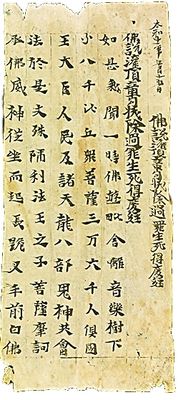 太和十一年五月十五日
佛說灌頂章句拔除過罪生死得度經
佛說灌頂章句拔除過罪生死得度經
如是我聞一時佛遊離音樂樹下
八千比丘菩薩三万六千人俱國
王大臣人民及諸天龍八部鬼神共會
法於是文殊師利法王之子菩薩摩訶
承佛威神從坐而起長跪叉手前白佛